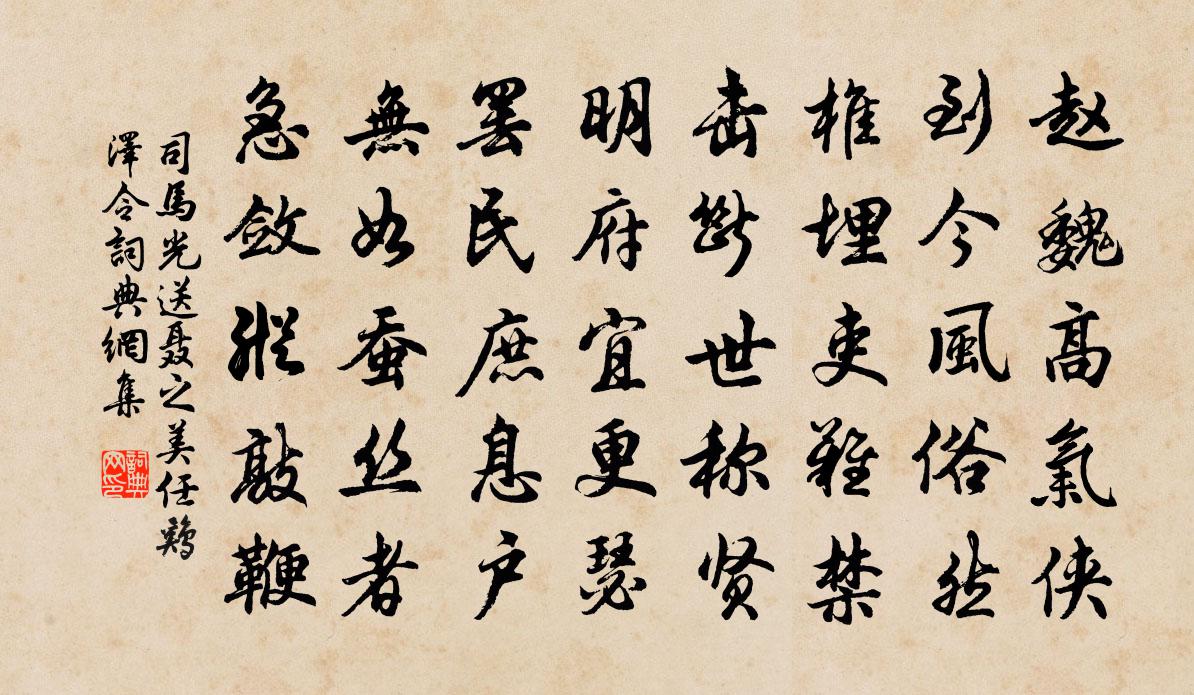 赵魏高氣侠
到今風俗然
椎埋吏難禁
击断世称贤
明府宜更瑟
罢民庶息户
無如蚕丝者
急敛縱敲鞭
司馬光送聂之美任鷄
澤令詞典網集
詞典
网印